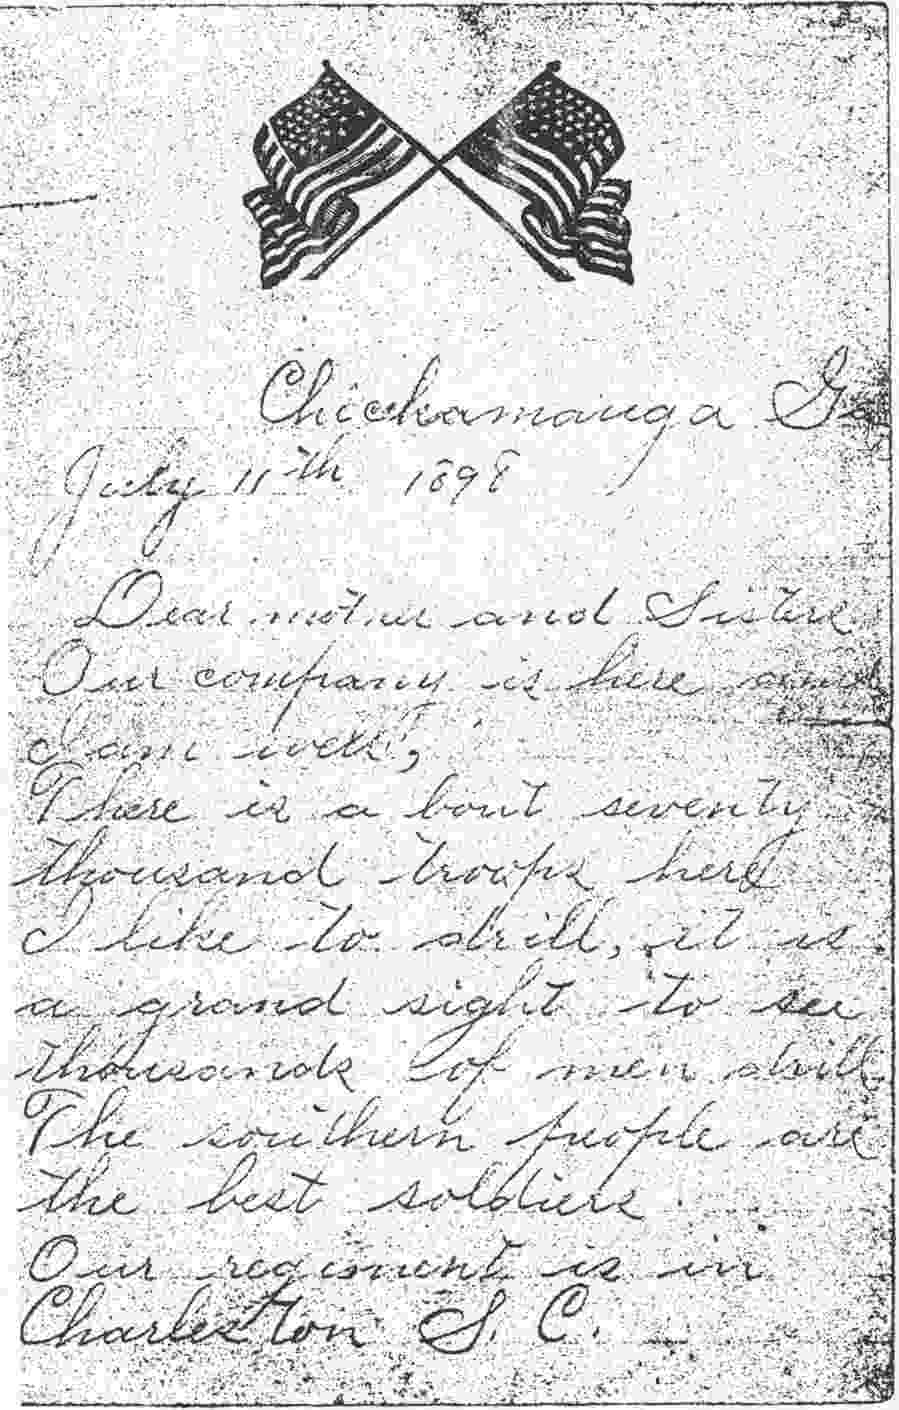 Chickamauga Ga
July 11th 1898
Dear mother and Sisters
Our company is here and
I am well,
There is a bout seventy
thousand troops here
I like to drill, it is
a grand sight to see
thousands of men drill
The southern people are
the best soldiers.
Our regiment is in
Charleston S. C.